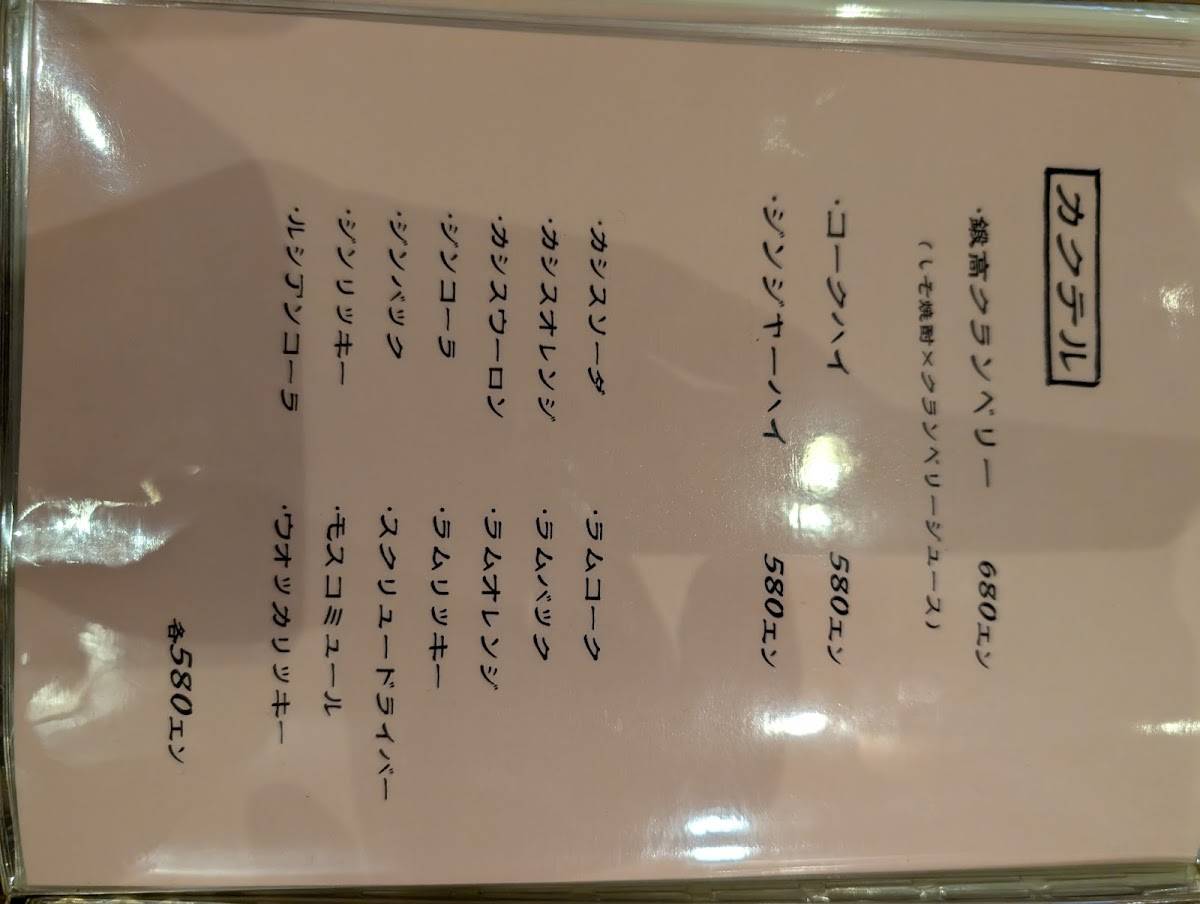 カクテル
・鍛高クランベリー 680エン
(しそ焼酎×クランベリージュース)
・コークハイ 580エン
・ジンジャーハイ 580エン
・カシスソーダ ・ラムコーク
・カシスオレンジ ・ラムバック
・カシスウーロン ・ラムオレンジ
・ジンコーラ ・ラムリッキー
・ジンバック ・スクリュードライバー
・ジンリッキー ・モスコミュール
・ルシアンコーラ ・ウオッカリッキー
各580エン